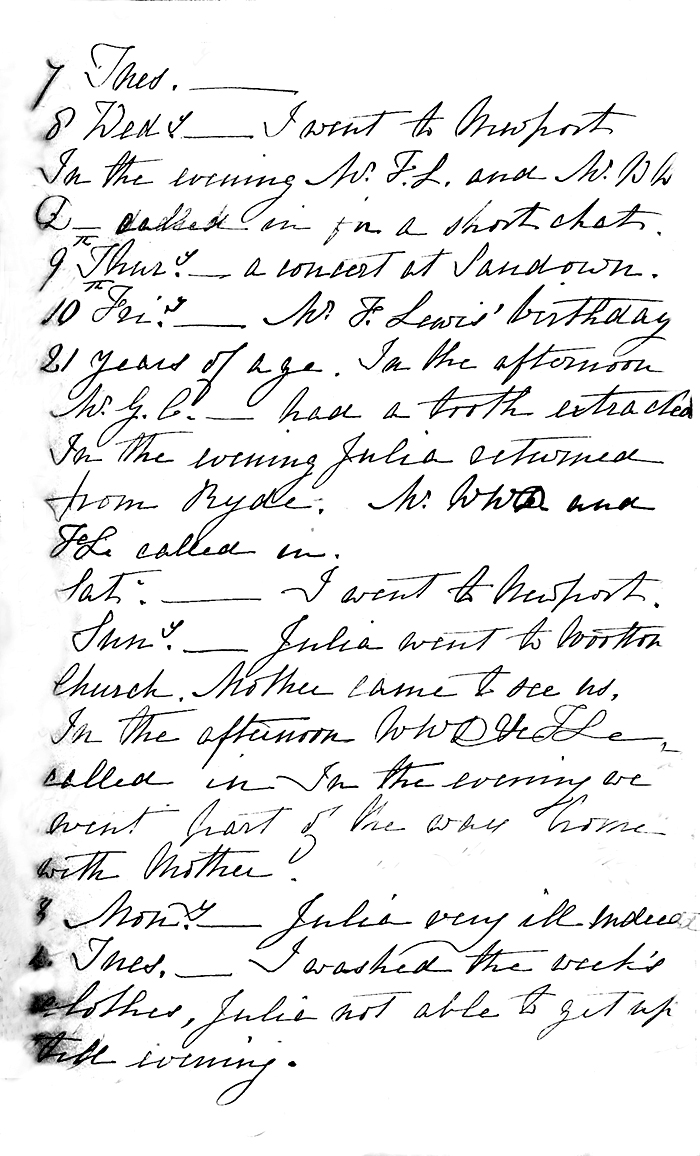 7 Tues. ——
8 Wedy —— I went to Newport
In the evening Mr. F.L. and Mr. W W
D — called in for a short chat.
9 Thurs.y — a concert at Sandown.
10 Fri.y —— Mr. F. Lewis' birthday
21 years of age. In the afternoon
Mr. G. C. — had a tooth extracted
In the evening Julia returned
from Ryde. Mr. WWD and
F L called in.
Sat. —— I went to Newport.
Sun.y —— Julia went to Wootton
Church. Mother came to see us.
In the afternoon WWD & F L
called in In the evening we
went part of the way home
with Mother.
Mon.y — Julia very ill indeed
Tues. — I washed the week's
clothes, Julia not able to get up
till evening.